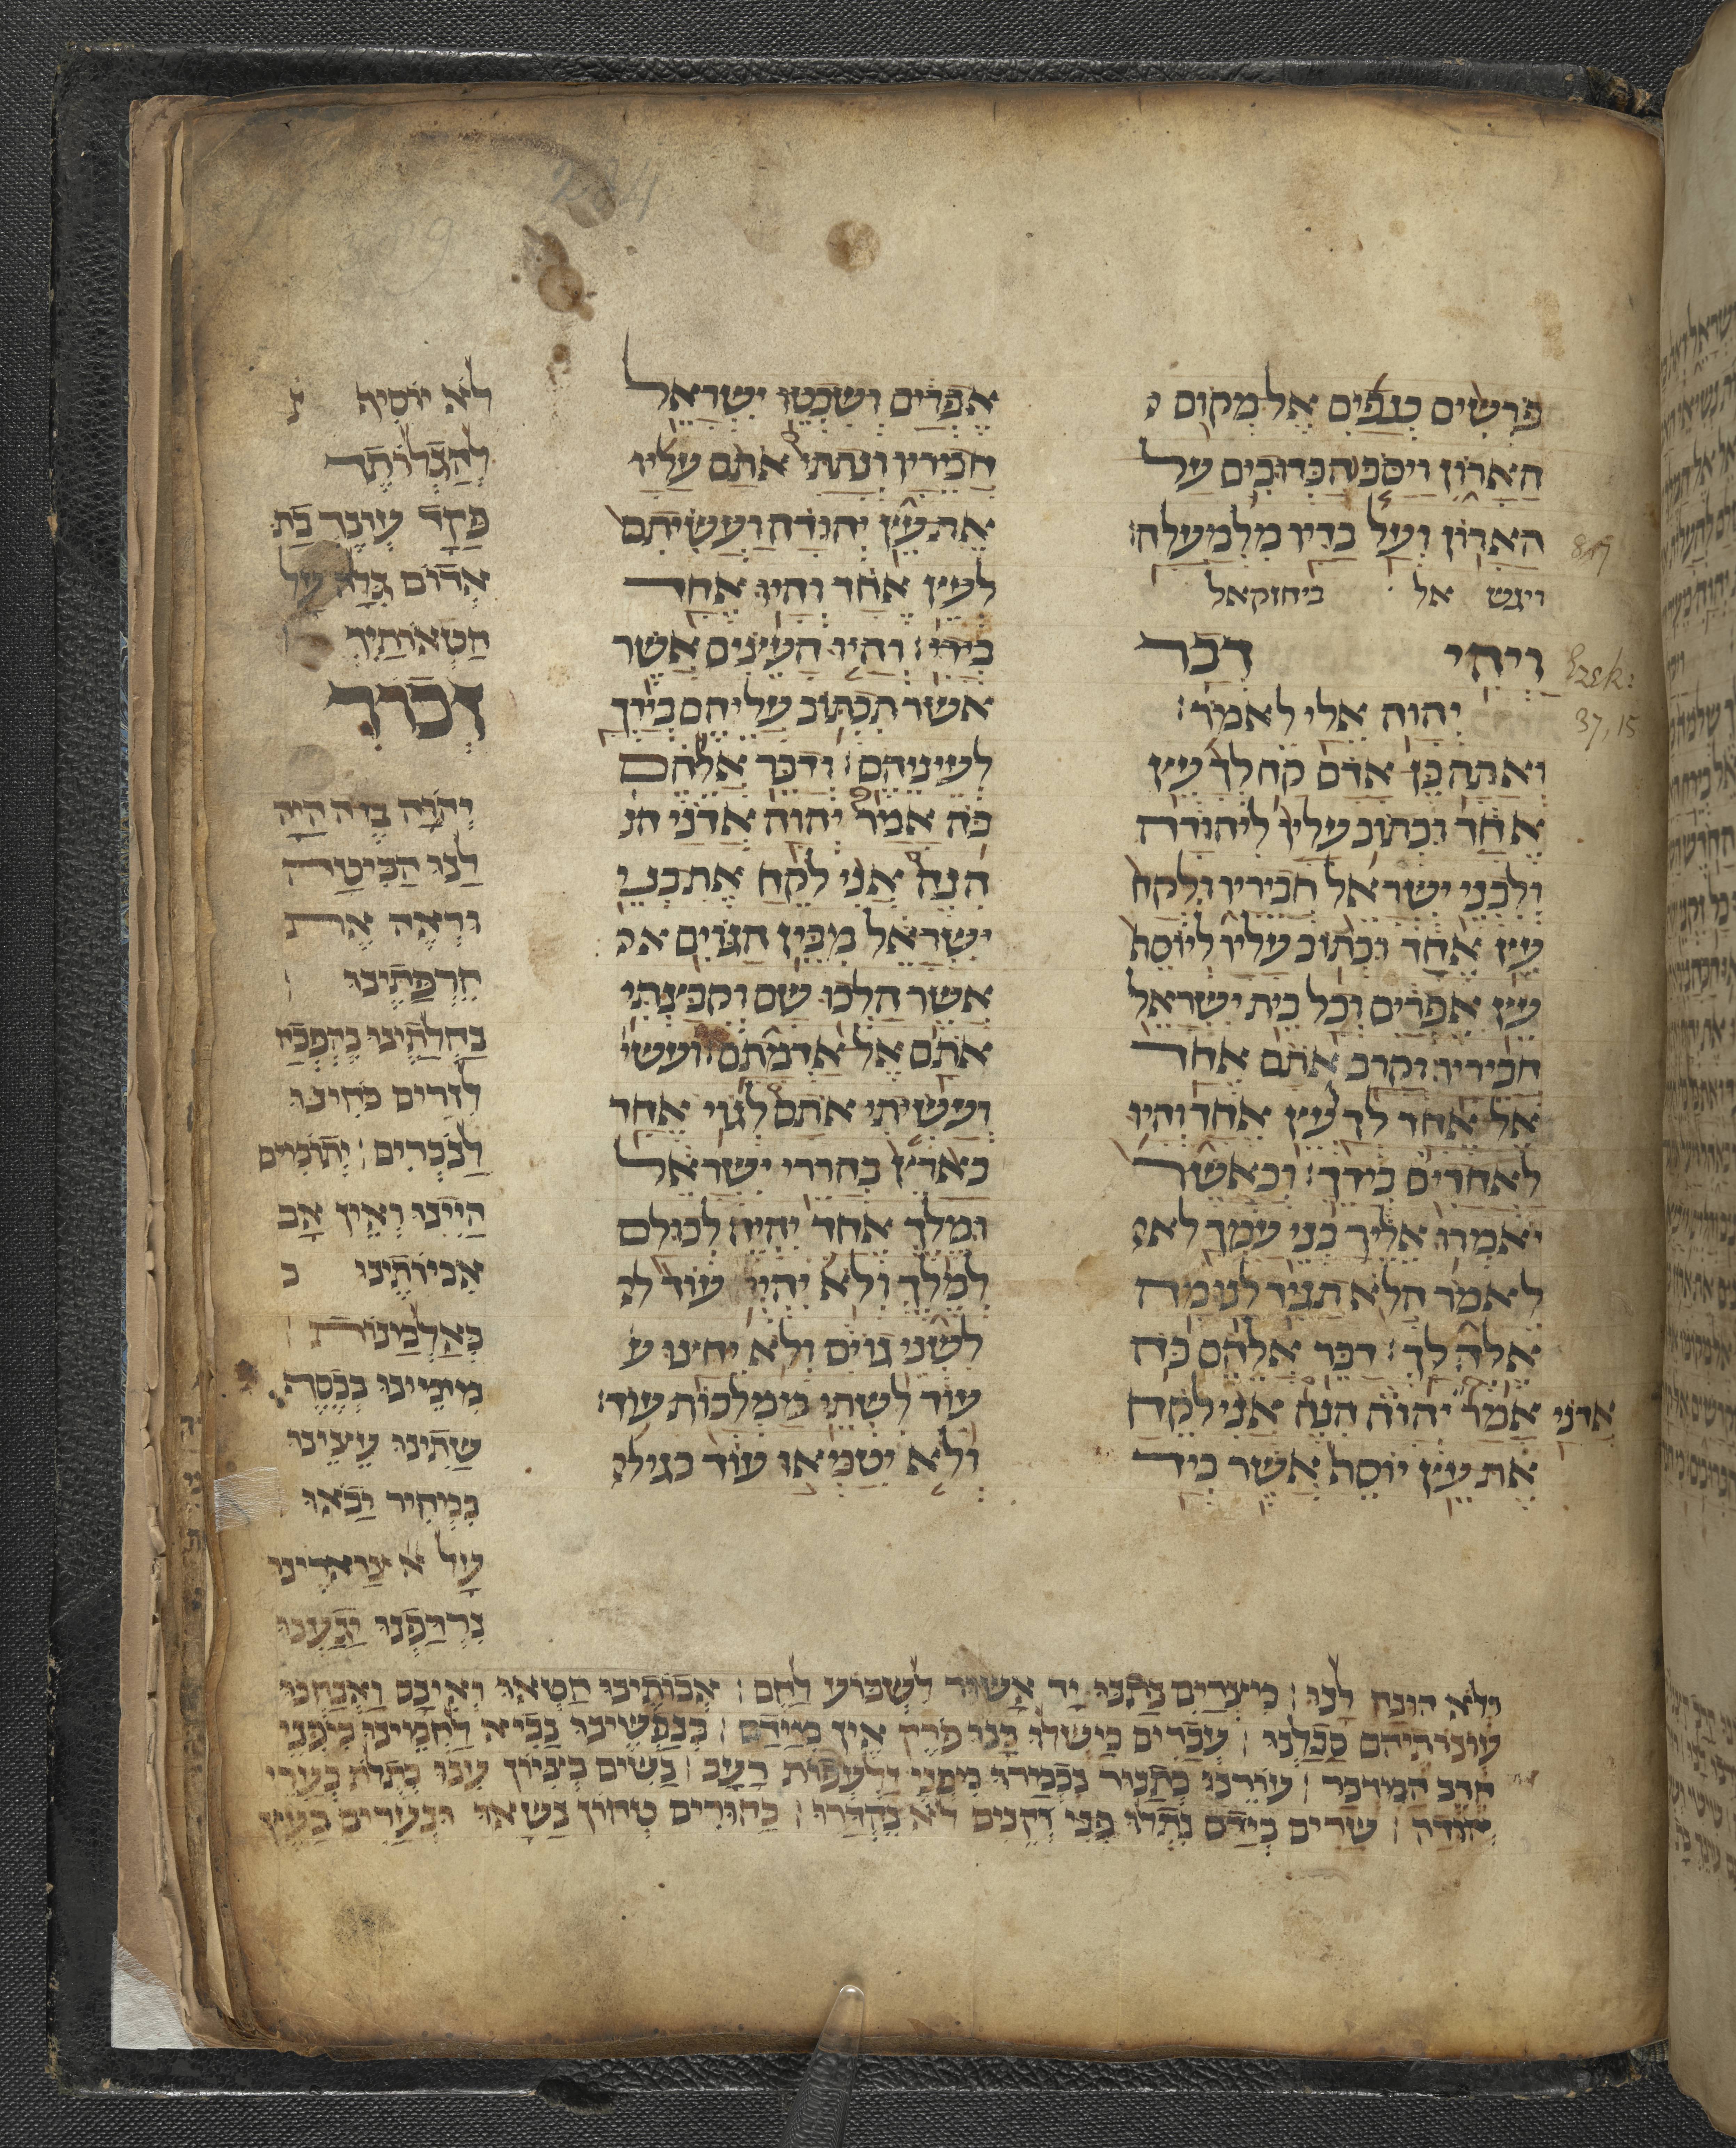 פרשים כנפים אל מקום
הארון ויסכו הכרובים על
הארון ועל בדיו מלמעלה:
8:7
ויגש אל ביחזקאל
ויהי דבר
Ezek:
37, 15
יהוה אלי לאמר:
ואתה בן אדם קח לך עץ
אחד וכתוב עליו ליהודה
ולבני ישראל חביריו ולקח
עץ אחד וכתוב עליו ליוסף
עץ אפרים וכל בית ישראל
חביריו וקרב אתם אחד
אל אחד לך עץ אחד והיו
לאחדים בידך: וכאשר
יאמרו אליך בני עמך לא
לאמר הלא תגיד לנו מה
אלה לך: דבר אלהם כה
אדני אמר יהוה הנה אני לקח
את עץ יוסף אשר ביד
אפרים ושבטו ישראל
חביריו ונתתי אתם עליו
את עץ יהודה ועשיתם
לעץ אחד והיו אחד
בידי: והיו העצים אשר
אשר תכתוב עליהם בידך
לעיניהם: ודבר אלהם
כה אמר יהוה אדני הנ
הנה אני לקח את בני
ישראל מבין הגוים א
אשר הלכו שם וקבצתי
אתם אל אדמתם: ועשי
ועשיתי אתם לגוי אחד
בארץ בהררי ישראל
ומלך אחד יהיה לכולם
למלך ולא יהיו עוד ל
לשני גוים ולא יחצו ע
עוד לשתי ממלכות עוד:
ולא יטמאו עוד בגילו
לא יוסיף
להגלותך
פקד עונך בת
אדום גלה על
חטאותיך
זכור
יהוה מה היה
לנו הביטה
וראה את
חרפתינו
נחלתינו נהפכה
לזרים בתינו
לנכרים: יתומים
היינו ואין אב
אמותינו כ
כאלמנות
מימינו בכסף
שתינו עצינו
במחיר יבאו
על צוארינו
נרדפנו יגענו
ולא הונח לנו: מצרים נתנו יד אשור לשבוע לחם: אבותינו חטאו ואינם ואנחנו
עונותיהם סבלנו: עבדים משלו בנו פרק אין מידם: בנפשינו נביא לחמינו מפני
חרב המדבר: עורנו כתנור נכמרו מפני זלעפות רעב: נשים בציון ענו בתלת בערי
יהודה: שרים בידם נתלו פני זקנים לא נהדרו: בחורים טחון נשאו ונערים בעץ